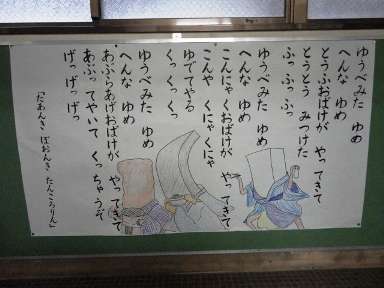 ゆうべみた ゆめ
へんな ゆめ
とうふおばけが やってきて
とうとう みつけた
ふっ ふっ ふっ
ゆうべみた ゆめ
へんな ゆめ
こんにゃくおばけが やってきて
こんや くにゃくにゃ
ゆでてやる
くっ くっ くっ
ゆうべみた ゆめ
へんな ゆめ
あぶらあげおばけが やってきて
あぶってやいて くっちゃうぞ
げっ げっ げっ
「だあんき ぽおんき たんころりん」